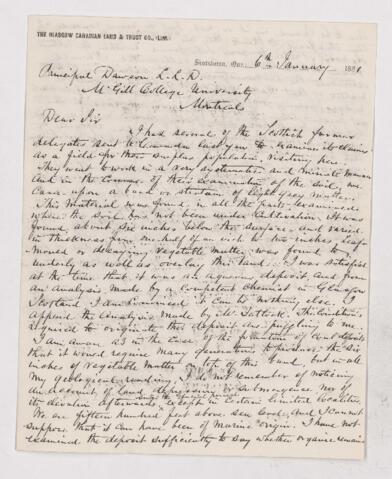 THE GLASGOW CANADIAN LAND & TRUST CO., LIM.
Scotstown, Que., 6th January 1881
Principal Dawson L.L.D.
McGill College University
Montreal
Dear Sir
I had several of the Scottish farmer
delegates sent to Canada last year to examine its claims
as a field for their surplus population, visiting here.
They went to work in a very systematic and minute manner
and in the course of their examination of the soil, we
came upon a band or stratum of light matter.
This material was found in all the parts examined
where the soil has not been under cultivation. It was
found about six inches below the surface and varied
in thickness from one half of an inch to two inches. Leaf
mould or decaying vegetable matter was found to
underly as well as overlay this band. I was satisfied
at the time that it was an aqueous deposit and from
an analysis made by a competent chemist in Glasgow
Scotland I am convinced it can be nothing else. I
append the analysis made by Mr. Tatlock. The conditions
required to originate this deposit are puzzling to me.
I am aware as in the case of the formation of coal deposits
that it would require many generations to produce the six
inches of vegetable matter on top of this band but in all
my geological reading I do not remember of noticing
an account of land depression or submergence nor of
its elevation afterwards except in certain limited localities.
We are fifteen hundred feet above sea level and I cannot
suppose that it can have been of marine origin. I have not
examined the deposit sufficiently to say whether organic remains